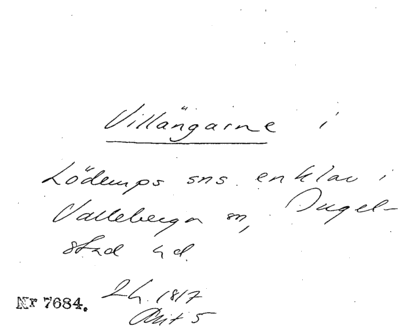 Villängarne i
Löderups sns. enklav i
Valleberga sn, Ingel-
stad hd.
Nr 7684.
Lh. 1817
Akt 5